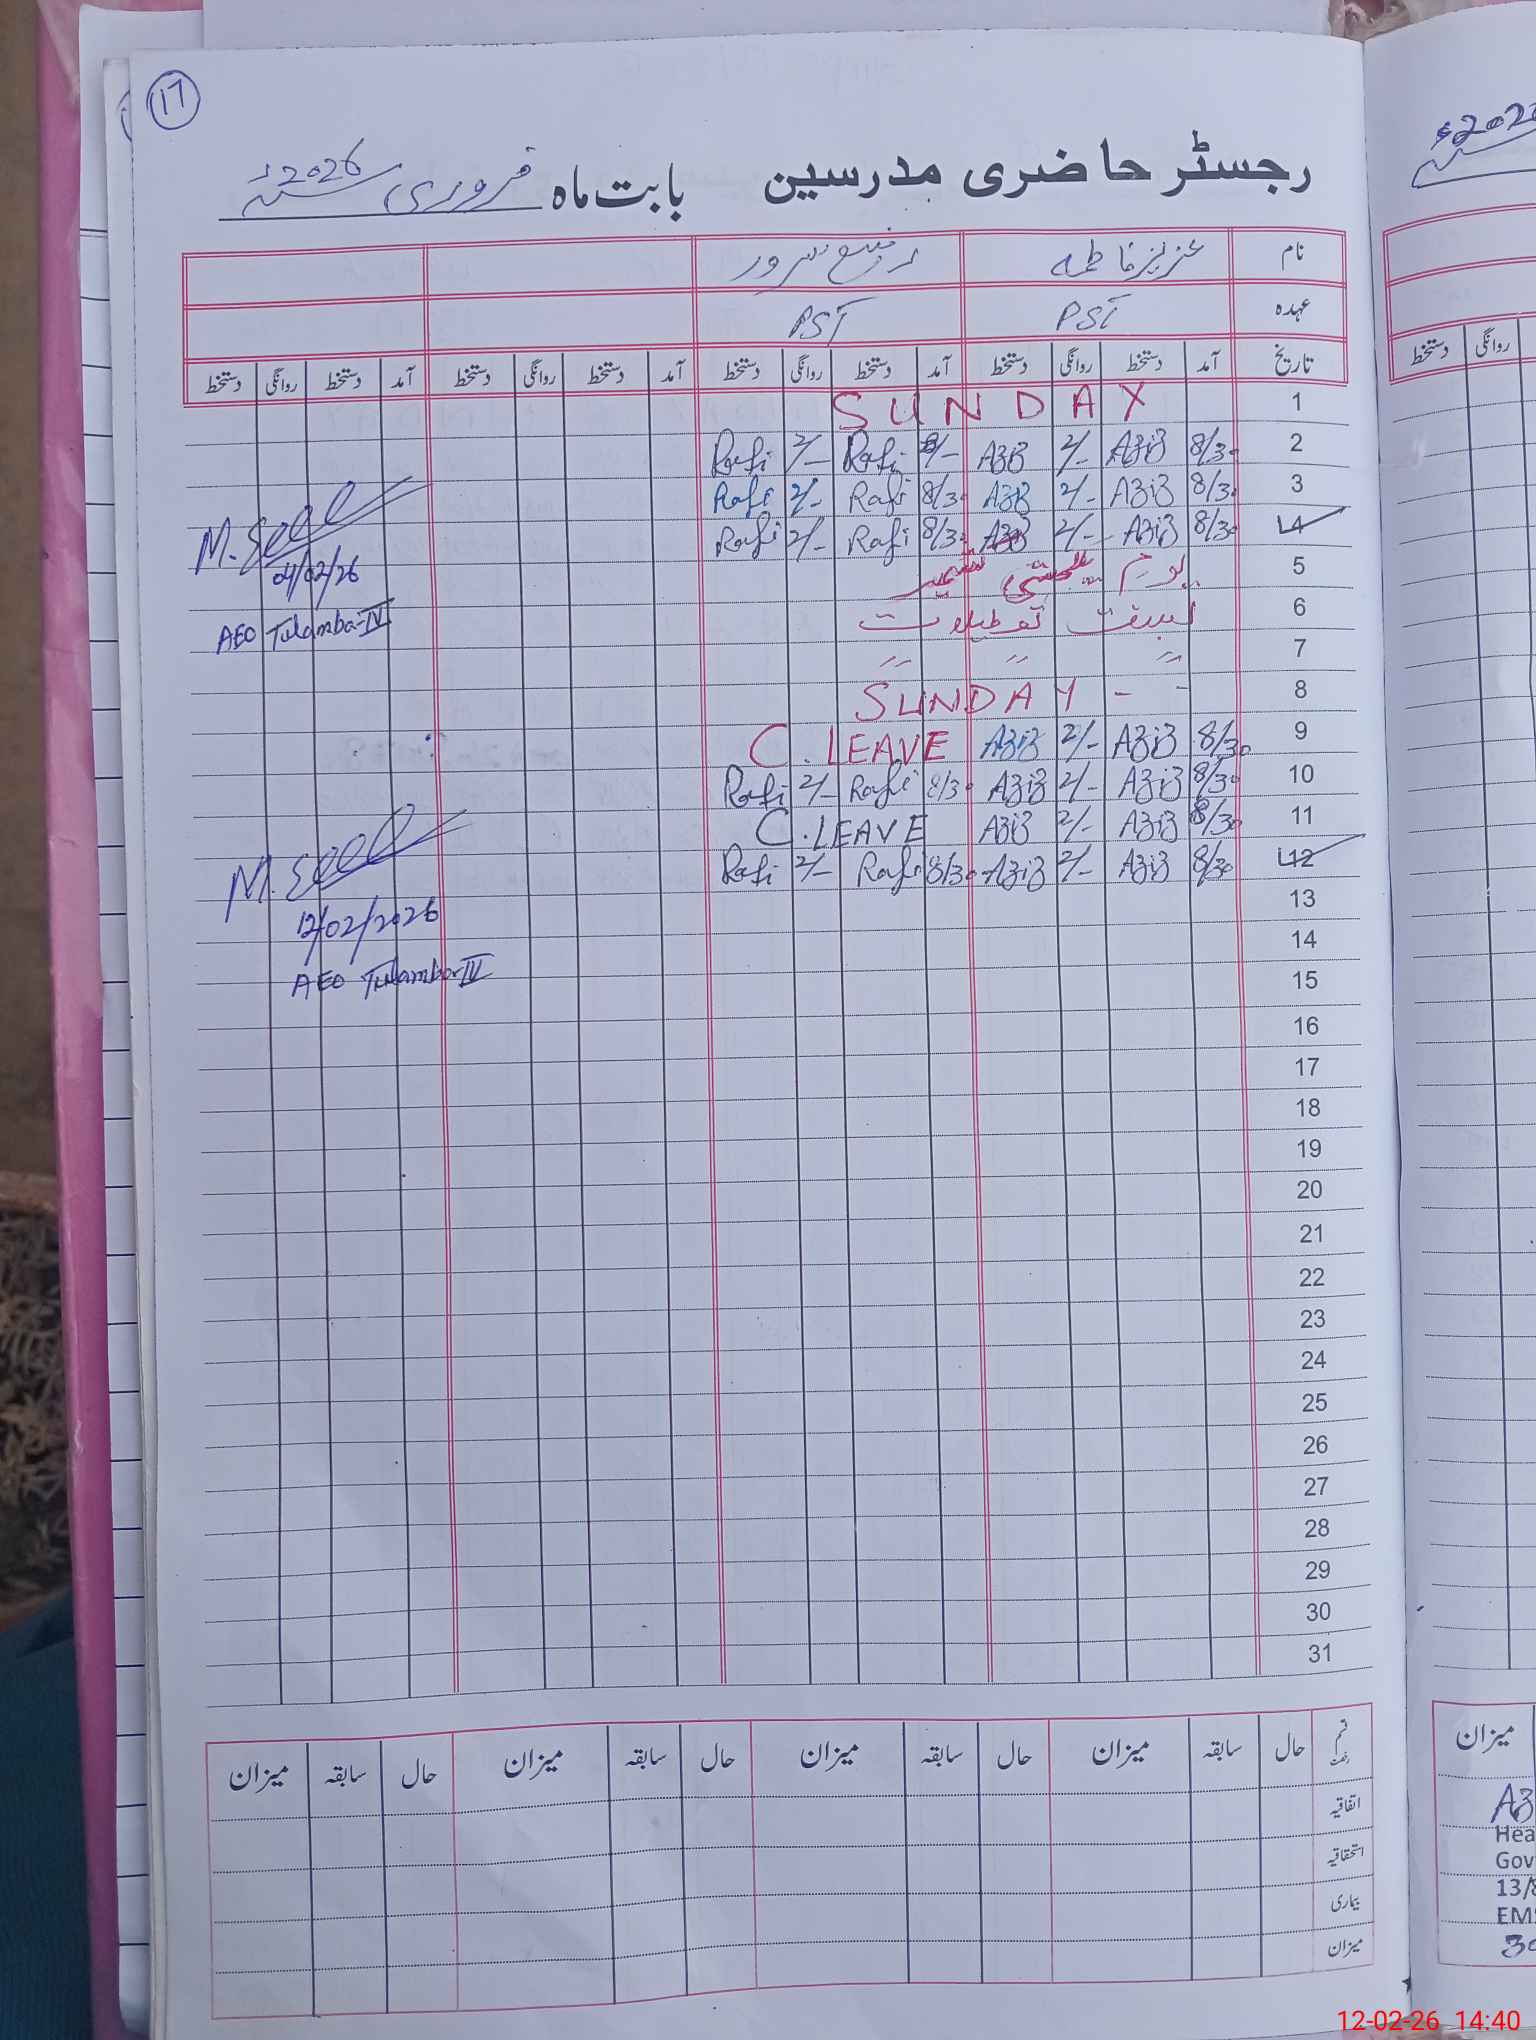 17
رجسٹر حاضری مدرسین بابت ماہ فروری 2026ء
نام عزیز فاطمہ رفیع سرور
عہدہ PST PST
تاریخ آمد دستخط روانگی دستخط آمد دستخط روانگی دستخط آمد دستخط روانگی دستخط آمد دستخط روانگی دستخط
1 SUNDAY
2 8/30 AZIZ 2/- AZIZ 8/- Rafi 2/- Rafi
3 8/30 AZIZ 2/- AZIZ 8/30 Rafi 2/- Rafi
4 8/30 AZIZ 2/- AZIZ 8/30 Rafi 2/- Rafi
04/02/26
5 یوم یکجہتی کشمیر
AEO Tulamba-IV
6 بسنت تعطیلات
7 〃 〃 〃
8 SUNDAY - -
9 8/30 AZIZ 2/- AZIZ C.LEAVE
10 8/30 AZIZ 2/- AZIZ 8/30 Rafi 2/- Rafi
11 8/30 AZIZ 2/- AZIZ C.LEAVE
12 8/30 AZIZ 2/- AZIZ 8/30 Rafi 2/- Rafi
13
12/02/2026
14
AEO Tulamba-IV
15
16
17
18
19
20
21
22
23
24
25
26
27
28
29
30
31
حال سابقہ میزان حال سابقہ میزان حال سابقہ میزان حال سابقہ میزان
اتفاقیہ
استحقاقیہ
بیماری
میزان
روانگی دستخط
میزان
Hea
Gov
13/8
EMI
12-02-26 14:40